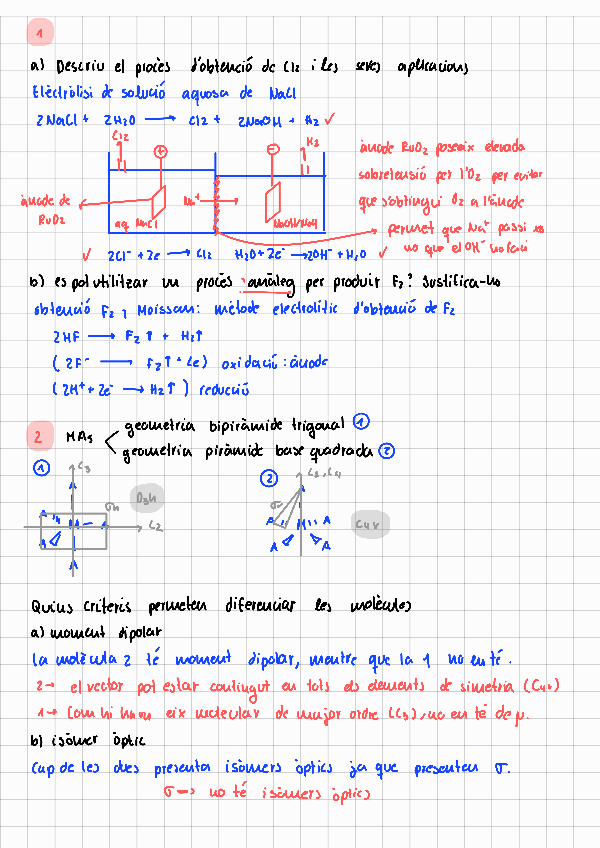 1
a) Descriu el procés d'obtenció de Cl2 i les seves aplicacions
Electròlisi de solució aquosa de NaCl
2NaCl + 2H2O → Cl2 + 2NaOH + H2 ✓
Cl2
+
-
H2
ànode de
RuO2
aq NaCl
Na+
NaOH/H2O
ànode RuO2 posseix elevada
sobretensió per l'O2 per evitar
que s'obtingui O2 a l'ànode
permet que Na+ passi
no que el OH- ho faci
✓ 2Cl- + 2e → Cl2 H2O + 2e- → 2OH- + H2O ✓
b) es pot utilitzar un procés anàleg per produir F2? Justifica-ho
obtenció F2, Moissan: mètode electrolític d'obtenció de F2
2HF → F2↑ + H2↑
(2F- → F2↑ + 2e) oxidació: ànode
(2H+ + 2e- → H2↑) reducció
2 MA5 geometria bipiràmide trigonal 1
geometria piràmide base quadrada 2
1 C3
D3h
σh
C2
A
A
M
A
A
A
2 C2, C4
C4v
σ
A
A
M
A
A
A
Quins criteris permeten diferenciar les molècules
a) moment dipolar
La molècula 2 té moment dipolar, mentre que la 1 no en té.
2→ el vector pot estar contingut en tots els elements de simetria (C4v)
1→ Com hi ha eix molecular de major ordre (C3), no en té de μ.
b) isòmer òptic
Cap de les dues presenta isòmers òptics ja que presenten σ.
σ → no té isòmers òptics